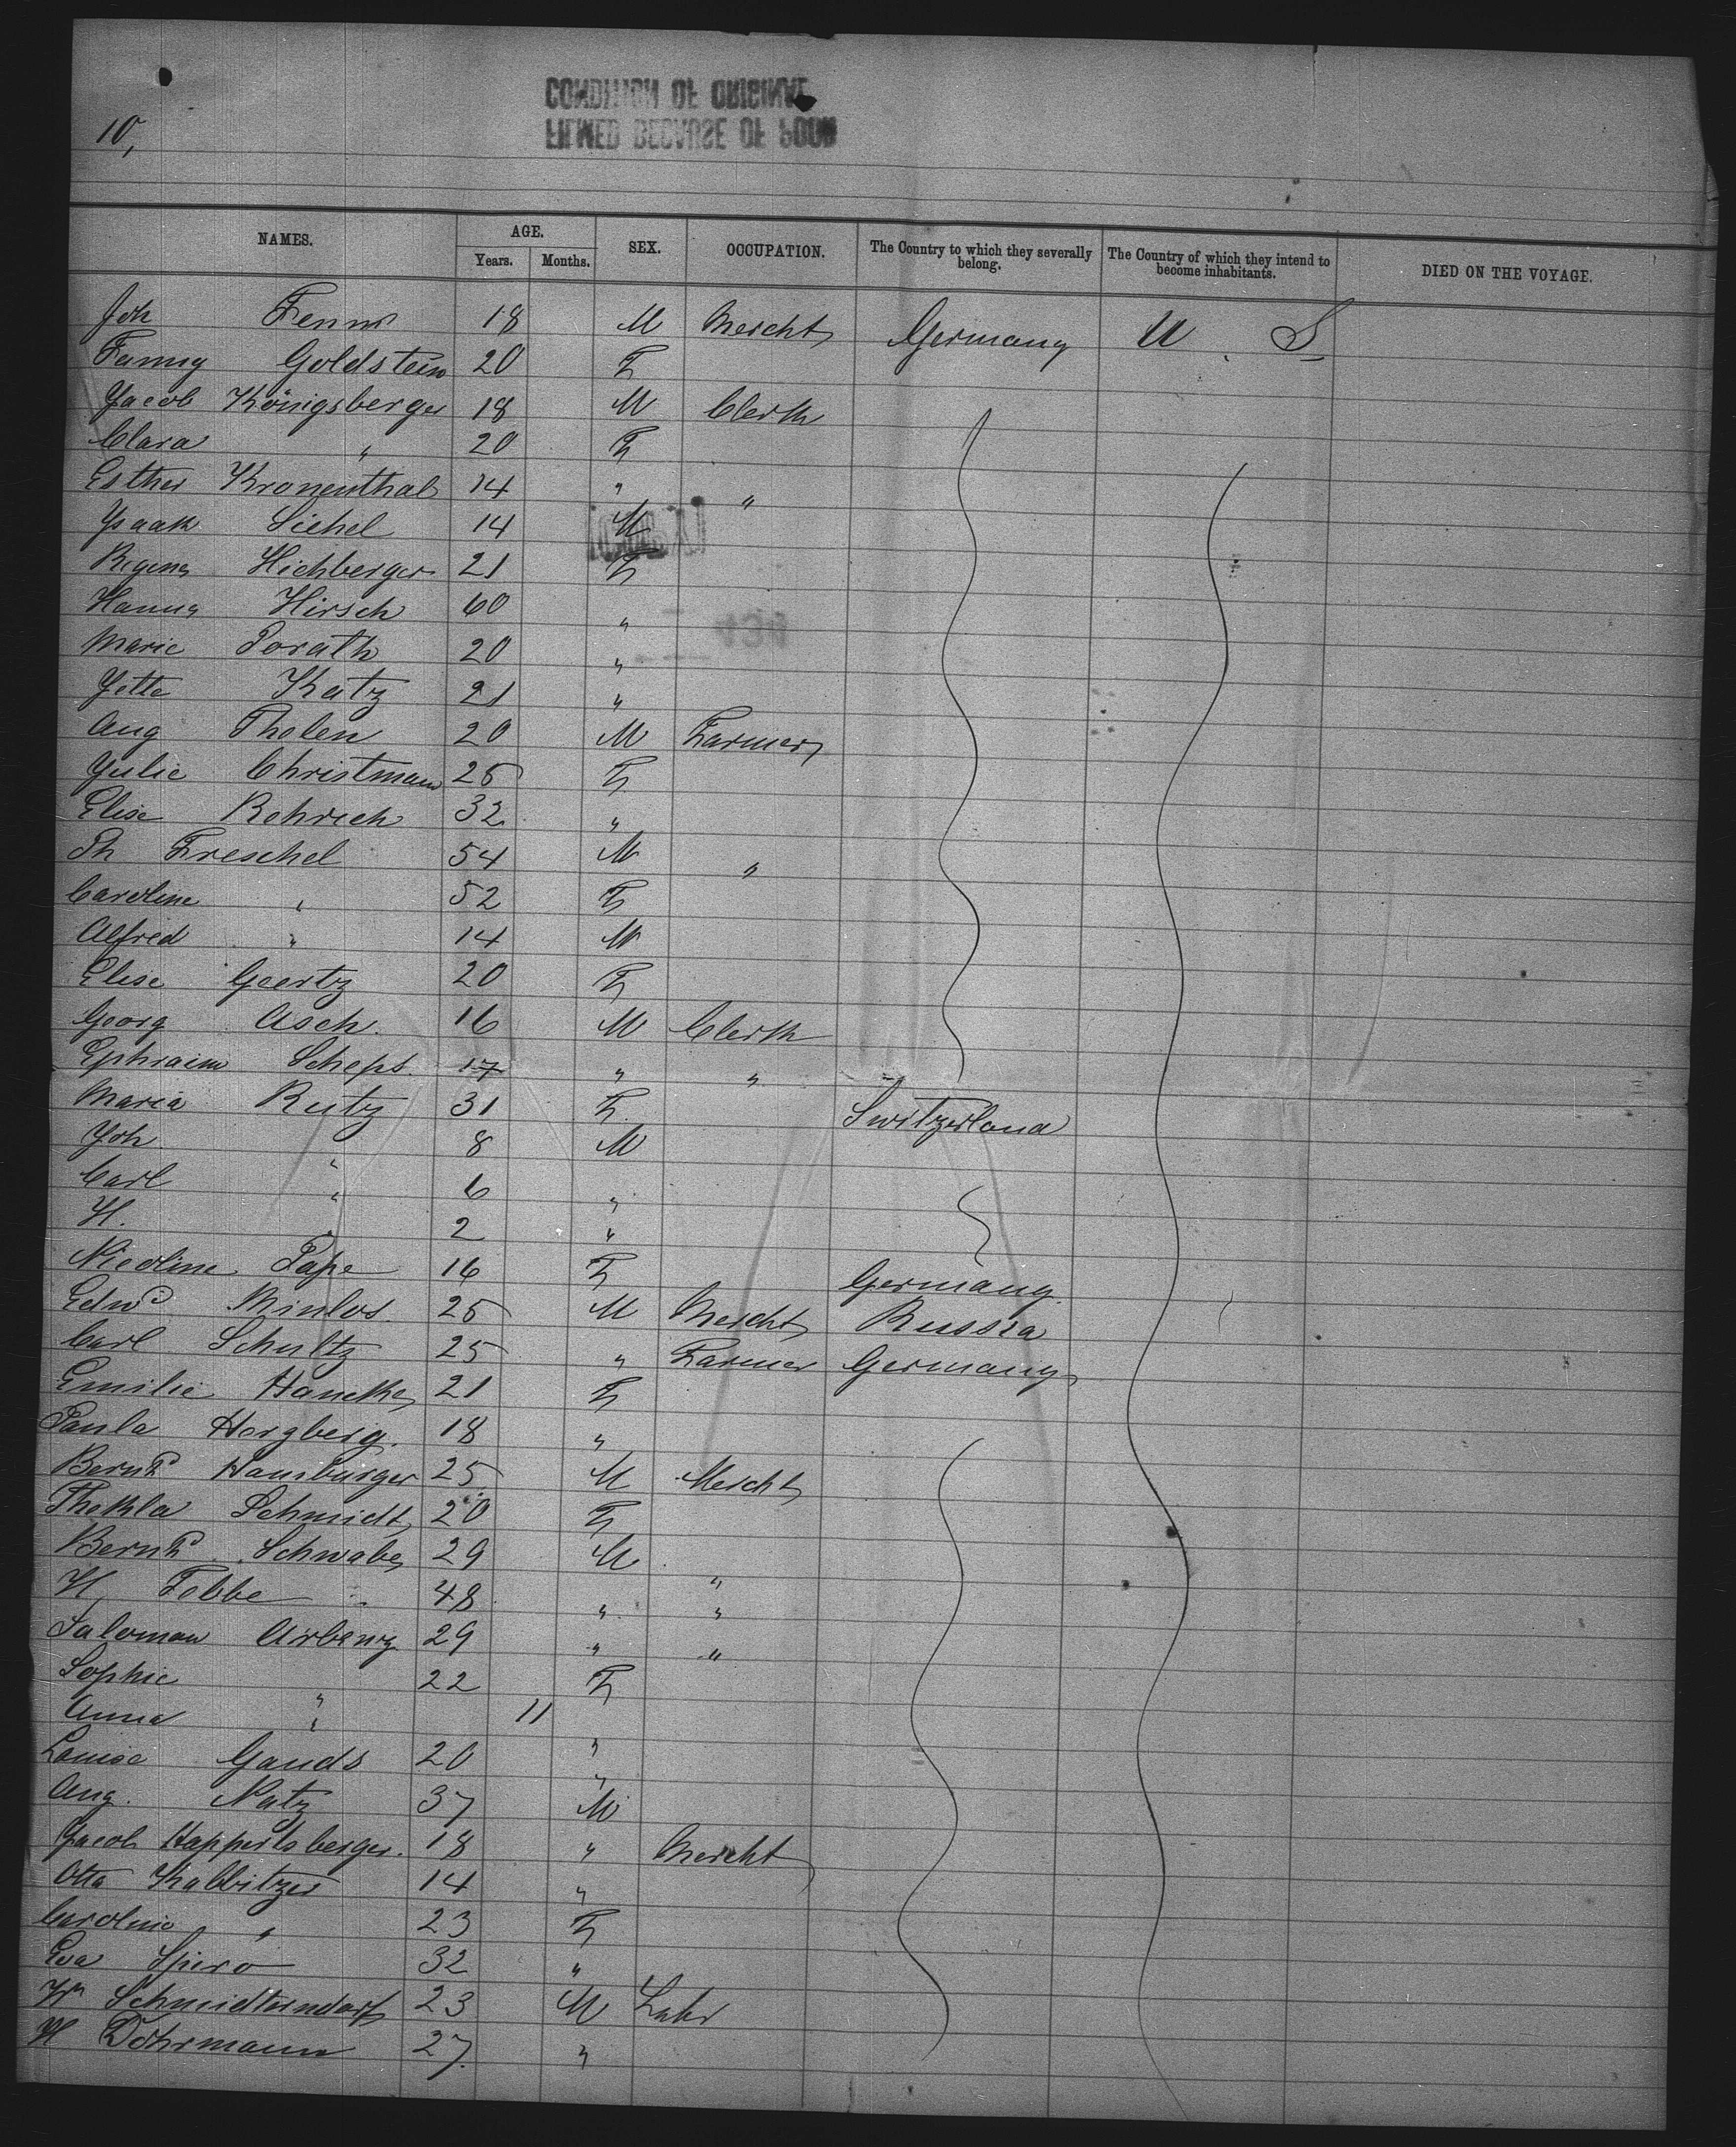 10,
CONDITION OF ORIGINAL
FILMED BECAUSE OF POOR
NAMES. AGE. SEX. OCCUPATION. The Country to which they severally belong. The Country of which they intend to become inhabitants. DIED ON THE VOYAGE.
Years. Months.
Joh 18 M Mercht Germany U. S
Fanny Goldstein 20 F
Jacob Königsberger 18 M Clerk
Clara " 20 F
Esther Kronenthal 14 " "
Isaak Sichel 14 M
Regina Hichberger 21 F
Hanna Hirsch 60 "
Marie Porath 20 "
Jette Katz 21 "
Aug Thelen 20 M Farmer
Julie Christmann 25 F
Elise Rohrich 32 "
Th Freschel 54 M "
Caroline " 52 F
Alfred " 14 M
Elise Geertz 20 F
Georg Asch. 16 M Clerk
Ephraim Scheps. 17 " "
Maria Rutz 31 F. Switzerland
Joh " 8 M
Carl " 6 "
H. " 2 "
Nicoline Pape 16 F Germany
Edwd Minlos. 25 M Mercht Russia
Carl Schultz 25 " Farmer Germany
Emilie Hancke 21 F
Paula Herzberg. 18 "
Bernhd Hamburger 25 M Mercht
Thekla Schmidt 20 F
Bernhd Schwabe 29 M "
H. Tebbe 48 " "
Saloman Arbenz 29 " "
Sophie " 22 F
Anna " 11 "
Louise Gands 20 "
Aug. Natz 37 M
Jacob Happertsberger. 18 " Mercht
Otto Kalbitzer 14 "
Caroline " 23 F
Eva Spiro 32 "
Wm 23 M Labr
H Dohrmann 27. "